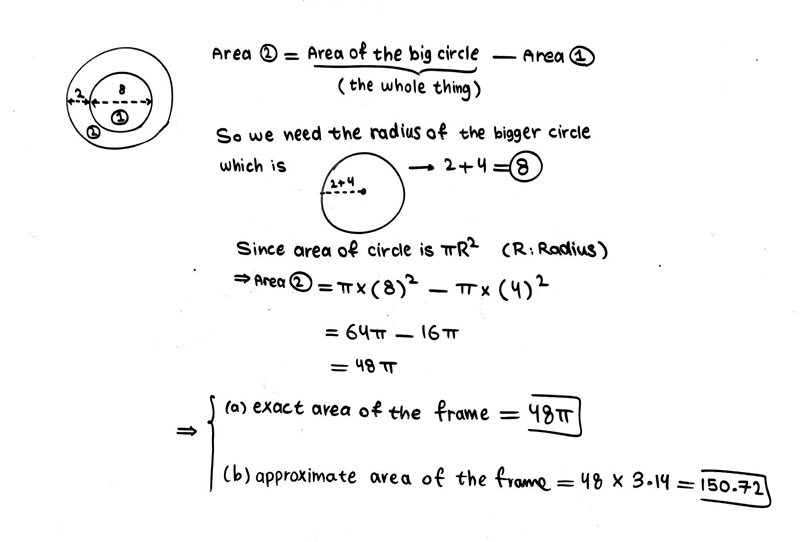 Area ② = Area of the big circle — Area ①
(the whole thing)
2 8
①
②
So we need the radius of the bigger circle
which is 2+4 → 2+4 = ⑧
Since area of circle is πR² (R: Radius)
⇒ Area ② = π × (8)² — π × (4)²
= 64π — 16π
= 48π
⇒ (a) exact area of the frame = 48π
(b) approximate area of the frame = 48 × 3.14 = 150.72